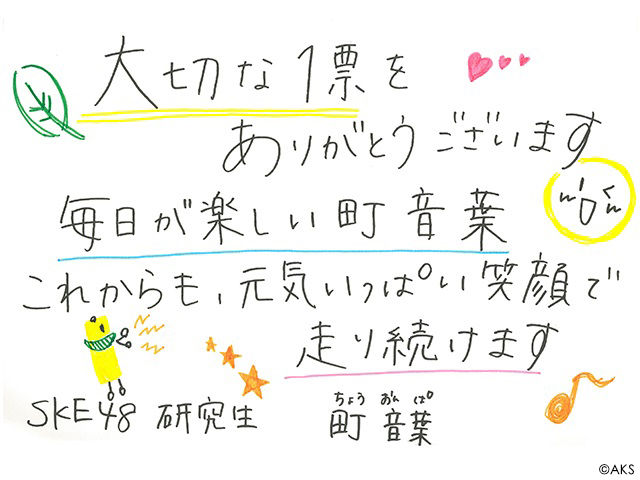 大切な1票を
ありがとうございます
毎日が楽しい町音葉
これからも、元気いっぱい笑顔で
走り続けます
ちょう おん ぱ
SKE48 研究生 町 音葉
©AKS